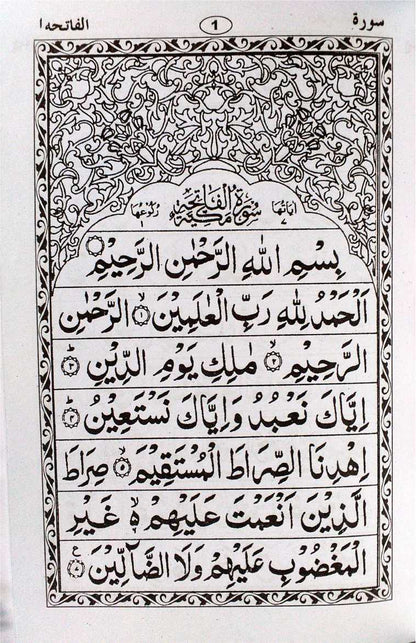 سورة ١ الفاتحه ١
اٰیاتھا ٧ سُوْرَةُ الْفَاتِحَةِ مَکِّیَّةٌ رکوعھا ١
بِسْمِ اللّٰهِ الرَّحْمٰنِ الرَّحِیْمِ
اَلْحَمْدُ لِلّٰهِ رَبِّ الْعٰلَمِیْنَ ۙ﴿١﴾ الرَّحْمٰنِ
الرَّحِیْمِ ۙ﴿٢﴾ مٰلِكِ یَوْمِ الدِّیْنِ ؕ﴿٣﴾
اِیَّاكَ نَعْبُدُ وَاِیَّاكَ نَسْتَعِیْنُ ؕ﴿٤﴾
اِهْدِنَا الصِّرَاطَ الْمُسْتَقِیْمَ ۙ﴿٥﴾ صِرَاطَ
الَّذِیْنَ اَنْعَمْتَ عَلَیْهِمْ ۙ۬ غَیْرِ
الْمَغْضُوْبِ عَلَیْهِمْ وَلَا الضَّآلِّیْنَ ﴿٧﴾ ع